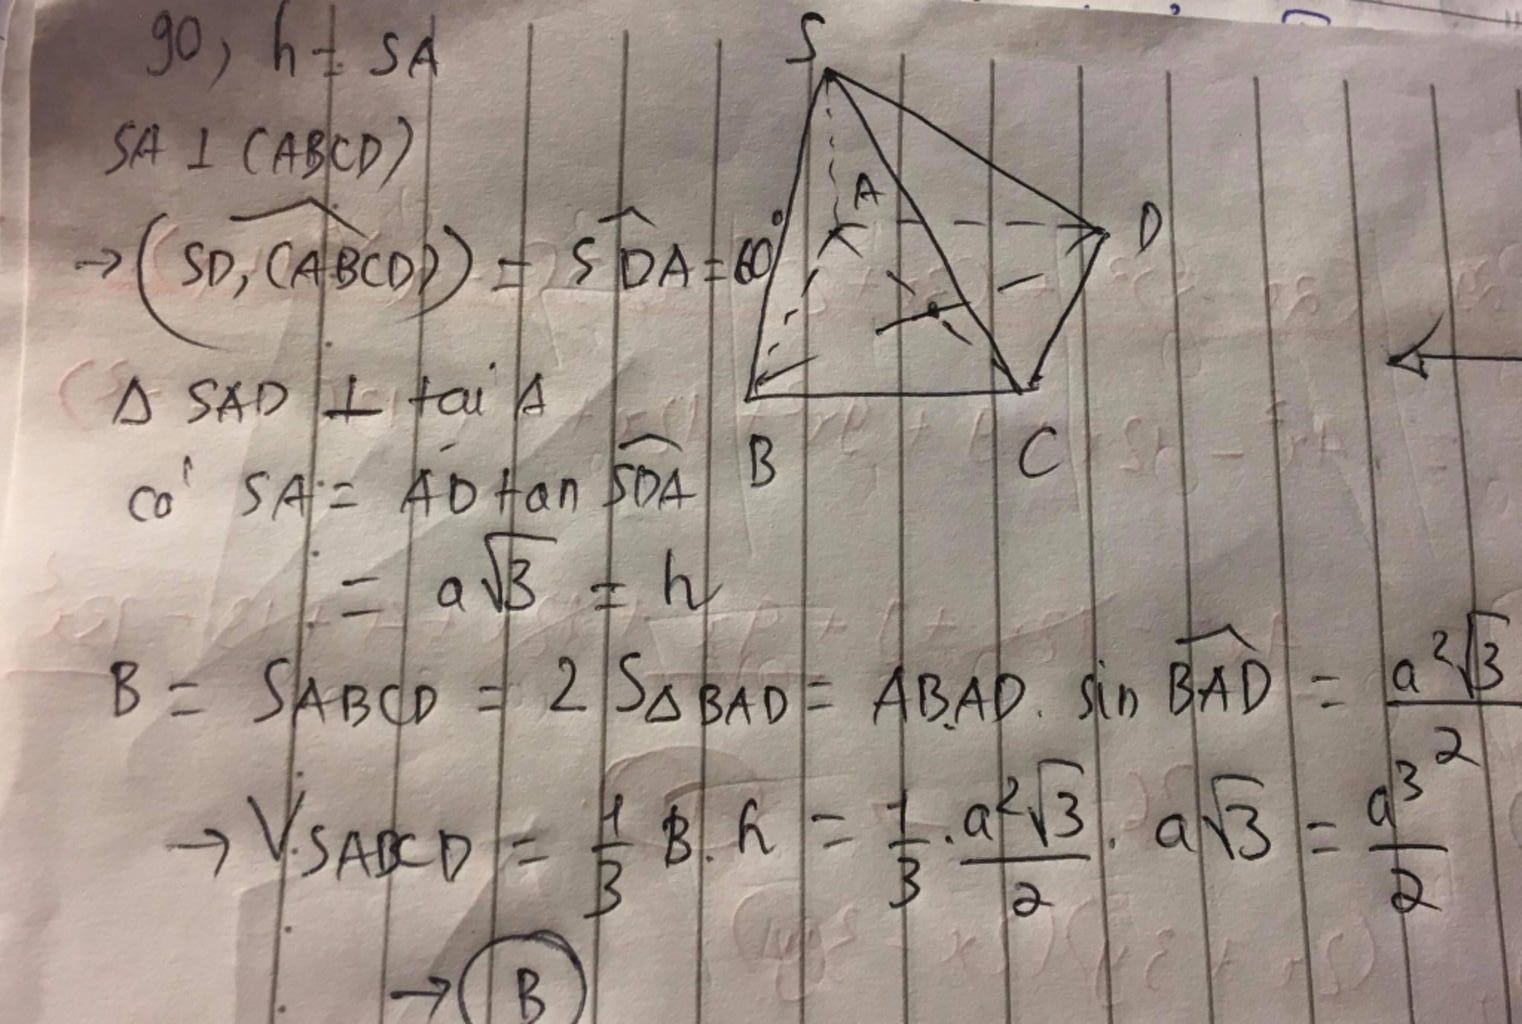 90, h = SA
SA ⊥ (ABCD)
→ (SD, (ABCD)) = SDA = 60°
Δ SAD ⊥ tại A
có SA = AD tan SDA
= a√3 = h
B = SABCD = 2 SΔBAD = AB.AD. sin BAD = a²√3/2
→ V.SABCD = 1/3 B.h = 1/3 . a²√3/2 . a√3 = a³/2
→ B
S
A
D
B
C